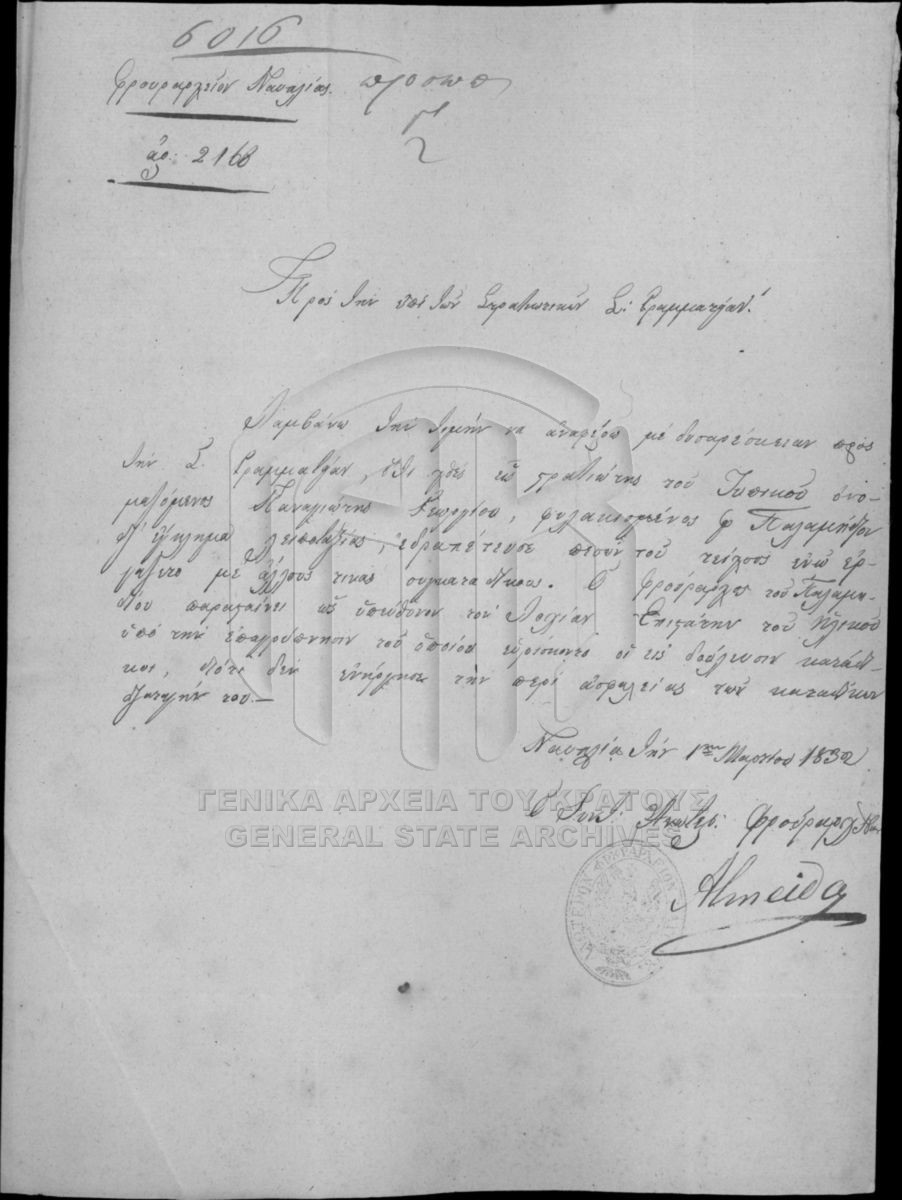 6016
Φρουραρχεῖον Ναυπλίας.
ἀρ: 2168
Πρὸς τὴν ἐπὶ τῶν Στρατιωτικῶν Σ: Γραμματείαν!
Λαμβάνω τὴν τιμὴν νὰ ἀναφέρω μὲ δυσαρέσκειαν πρὸς
τὴν Σ. Γραμματείαν, ὅτι χθὲς εἷς στρατιώτης τοῦ Τυπικοῦ ὀνο-
μαζόμενος Παναγιώτης Γεωργίου, φυλακισμένος Παλαμήδιον
δι' ἔγκλημα λειποταξίας, ἐδραπέτευσε τοῦ τείχους ἐνῶ ἐρ-
γάζετο μὲ ἄλλους τινὰς συγκαταδίκους. Ὁ φρούραρχος τοῦ Παλαμη-
δίου παρασταίνει ὡς ὑπεύθυνον τὸν Λοχίαν Ἐπιστάτην τοῦ ὑλικοῦ
ὑπὸ τὴν ἐπαγρύπνησιν τοῦ ὁποίου εὑρίσκοντο οἱ εἰς δούλευσιν κατάδι-
κοι, διότι δὲν ἐνήργησε τὴν περὶ ἀσφαλείας τῶν καταδίκων
διαταγήν του.—
Ναυπλία τὴν 1ην Μαρτίου 1832
Ὁ Φρούραρχος
Almeida
ΓΕΝΙΚΑ ΑΡΧΕΙΑ ΤΟΥ ΚΡΑΤΟΥΣ
GENERAL STATE ARCHIVES